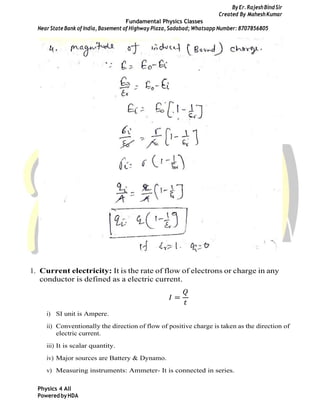 By Er. Rajesh Bind Sir
Created By Mahesh Kumar
Fundamental Physics Classes
Near State Bank of India, Basement of Highway Plaza, Sadabad; Whatsapp Number: 8707856805
4. magnitude of induct (Bound) charge.
∵ E = E₀ - Ei
E₀/εr = E₀ - Ei
Ei = E₀ [1 - 1/εr]
σi/ε₀ = σ/ε₀ [1 - 1/εr]
σi = σ (1 - 1/εr)
qi/A = q/A [1 - 1/εr]
qi = q (1 - 1/εr)
If εr = 1. qi = 0
1. Current electricity: It is the rate of flow of electrons or charge in any
conductor is defined as a electric current.
I = Q/t
i) SI unit is Ampere.
ii) Conventionally the direction of flow of positive charge is taken as the direction of
electric current.
iii) It is scalar quantity.
iv) Major sources are Battery & Dynamo.
v) Measuring instruments: Ammeter- It is connected in series.
Physics 4 All
Powered by HDA